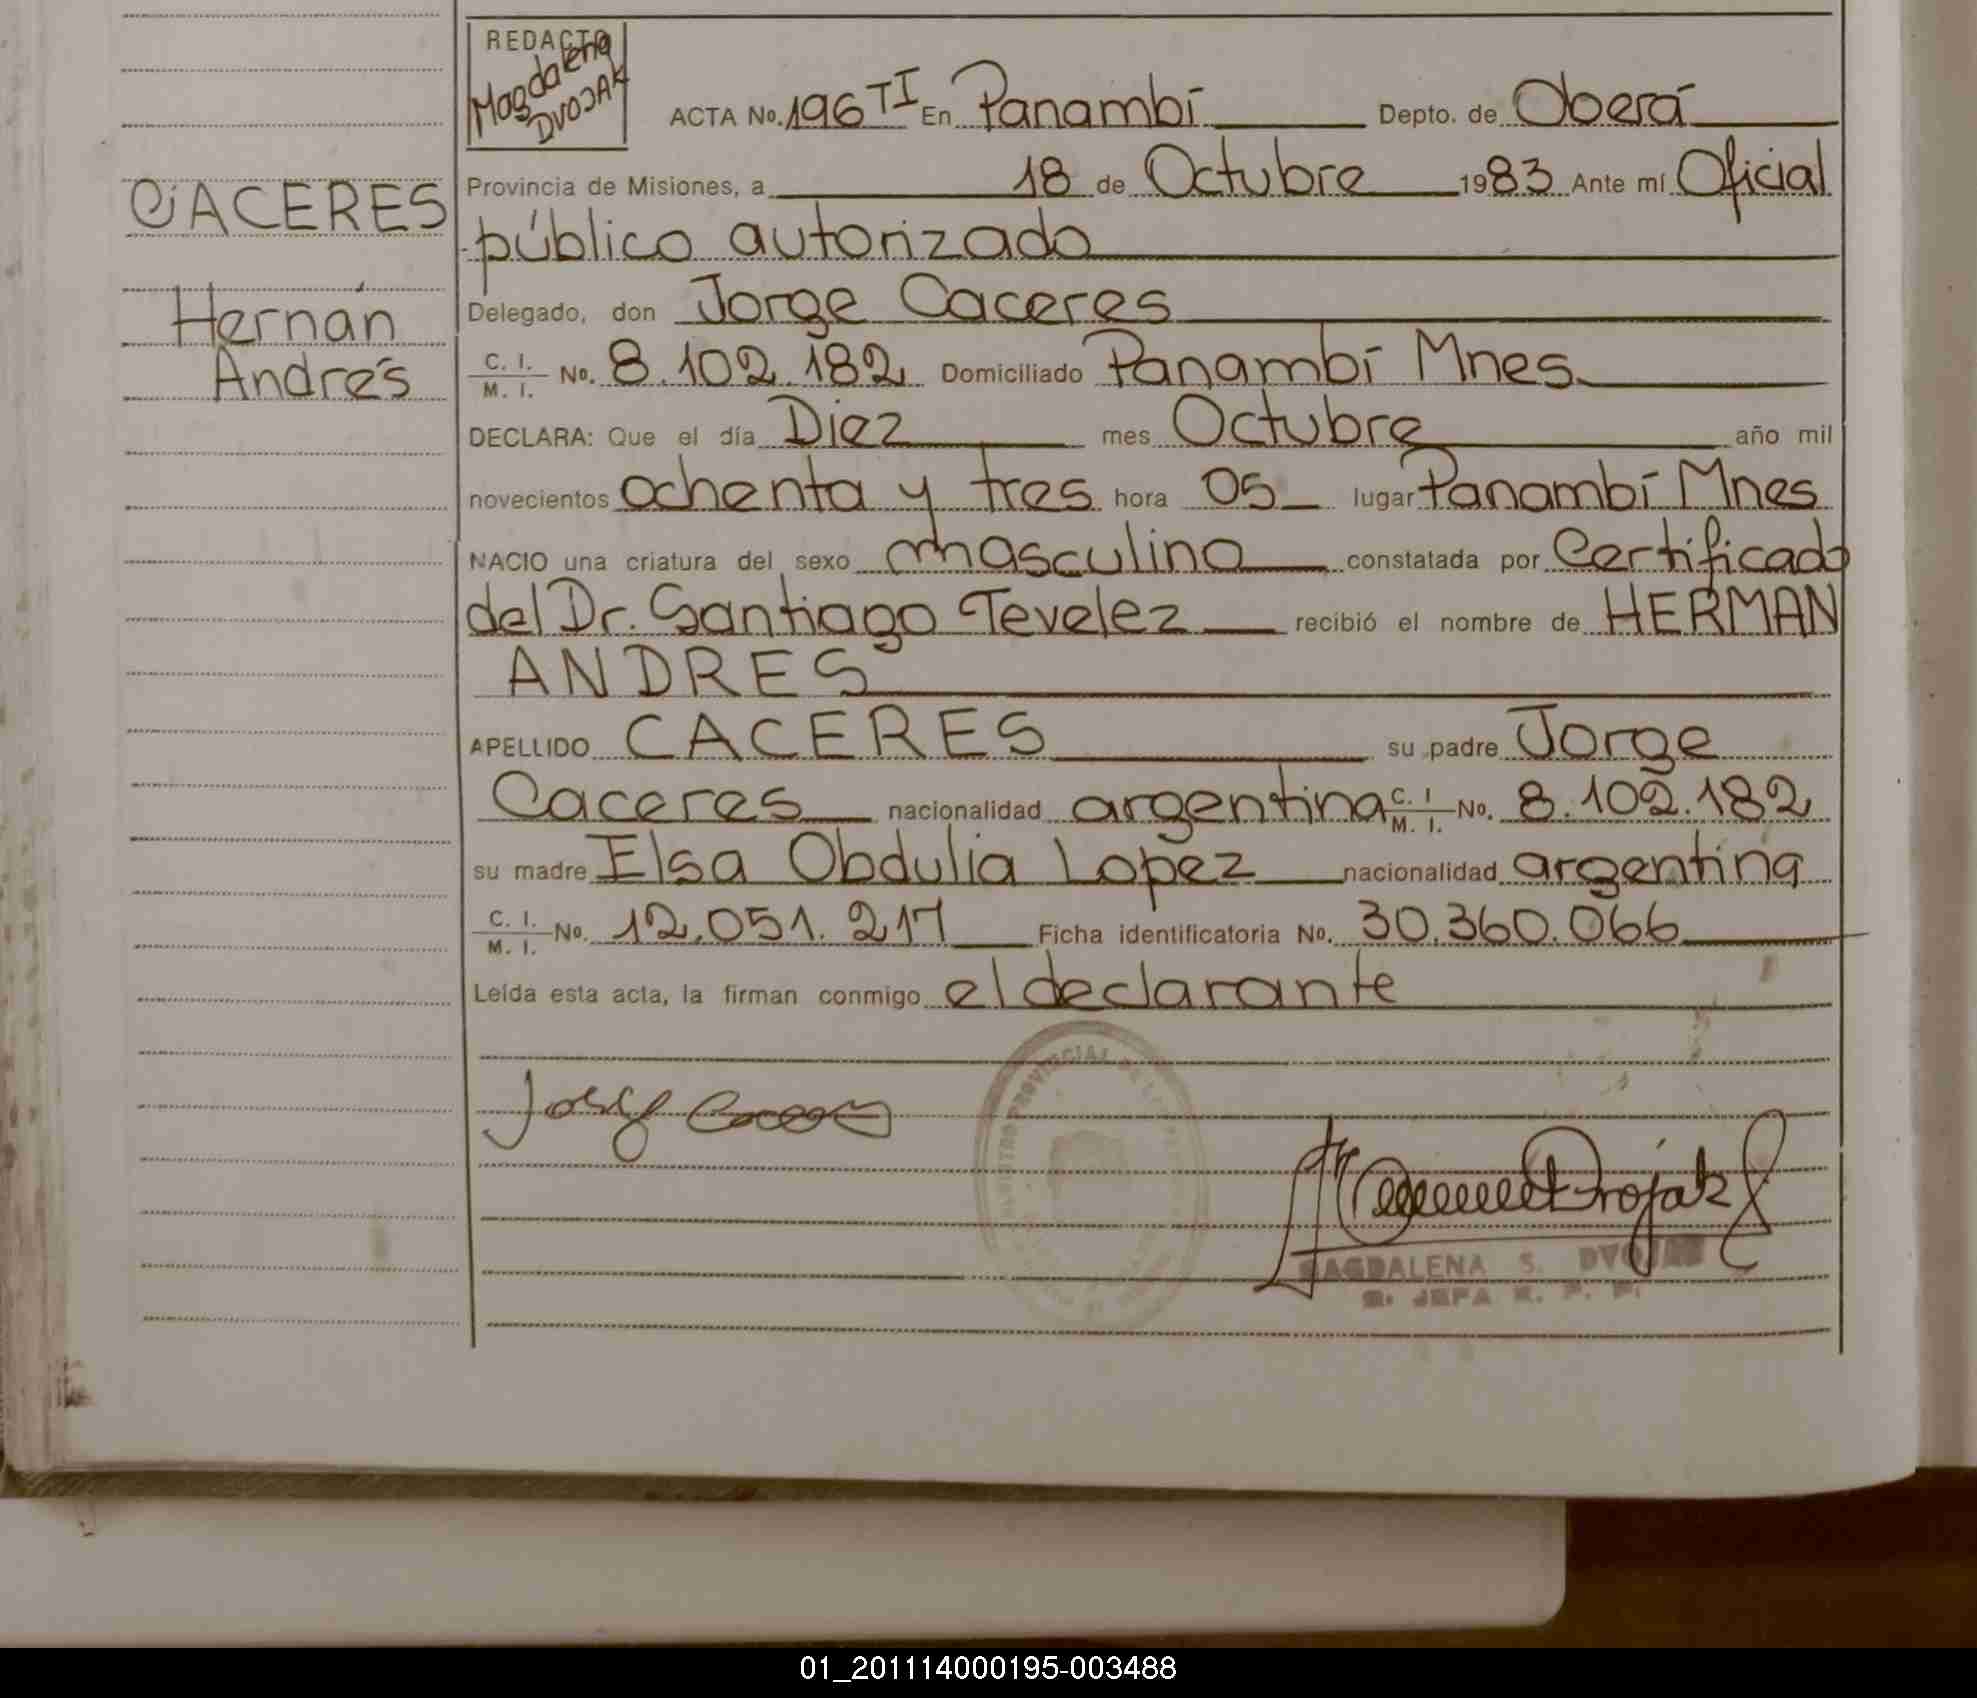 REDACTO
Magdalena
DVOJAK
ACTA No. 196 TI En Panambí Depto. de Oberá
Provincia de Misiones, a 18 de Octubre 1983 Ante mí Oficial
público autorizado
Delegado, don Jorge Caceres
C. I.
M. I. No. 8.102.182 Domiciliado Panambí Mnes.
DECLARA: Que el día Diez mes Octubre año mil
novecientos ochenta y tres hora 05 lugar Panambí Mnes
NACIO una criatura del sexo masculino constatada por Certificado
del Dr. Santiago Tevelez recibió el nombre de HERMAN
ANDRES
APELLIDO CACERES su padre Jorge
Caceres nacionalidad argentina C. I M. I. No. 8.102.182
su madre Elsa Obdulia Lopez nacionalidad argentina
C. I.
M. I. No. 12.051.217 Ficha identificatoria No. 30.360.066
Leída esta acta, la firman conmigo el declarante
CACERES
Hernán
Andrés
MAGDALENA S. DVOJAK
01_201114000195-003488